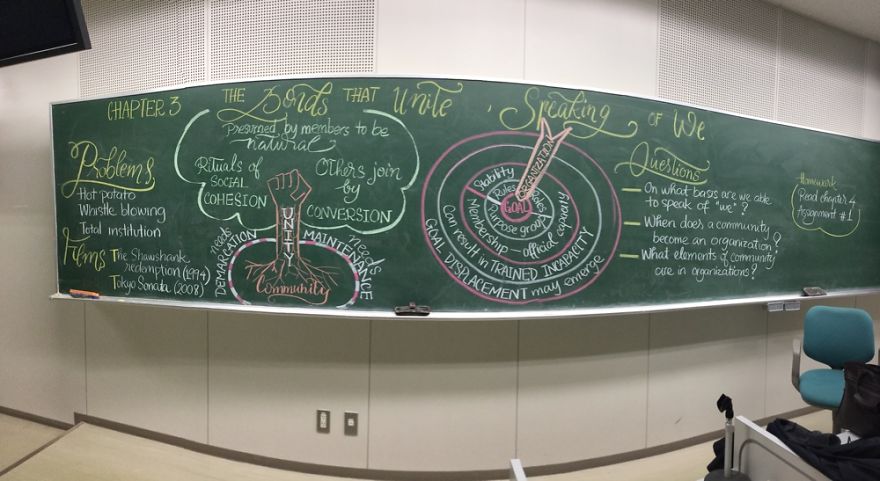 CHAPTER 3
THE Bonds THAT Unite, Speaking OF We
Problems
Hot potato
Whistle blowing
Total institution
Films
The Shawshank
Redemption (1994)
Tokyo Sonata (2008)
Presumed by members to be
natural
Rituals of
SOCIAL
COHESION
Others join
by
CONVERSION
UNITY
needs
DEMARCATION
needs
MAINTENANCE
Community
ORGANIZATION
Stability
Rules
Roles
GOAL
Purpose group
Membership - official capacity
Can result in TRAINED INCAPACITY
GOAL DISPLACEMENT may emerge
Questions
— On what basis are we able
to speak of "we"?
— When does a community
become an organization?
— What elements of community
are in organizations?
Homework
Read chapter 4
Assignment #1